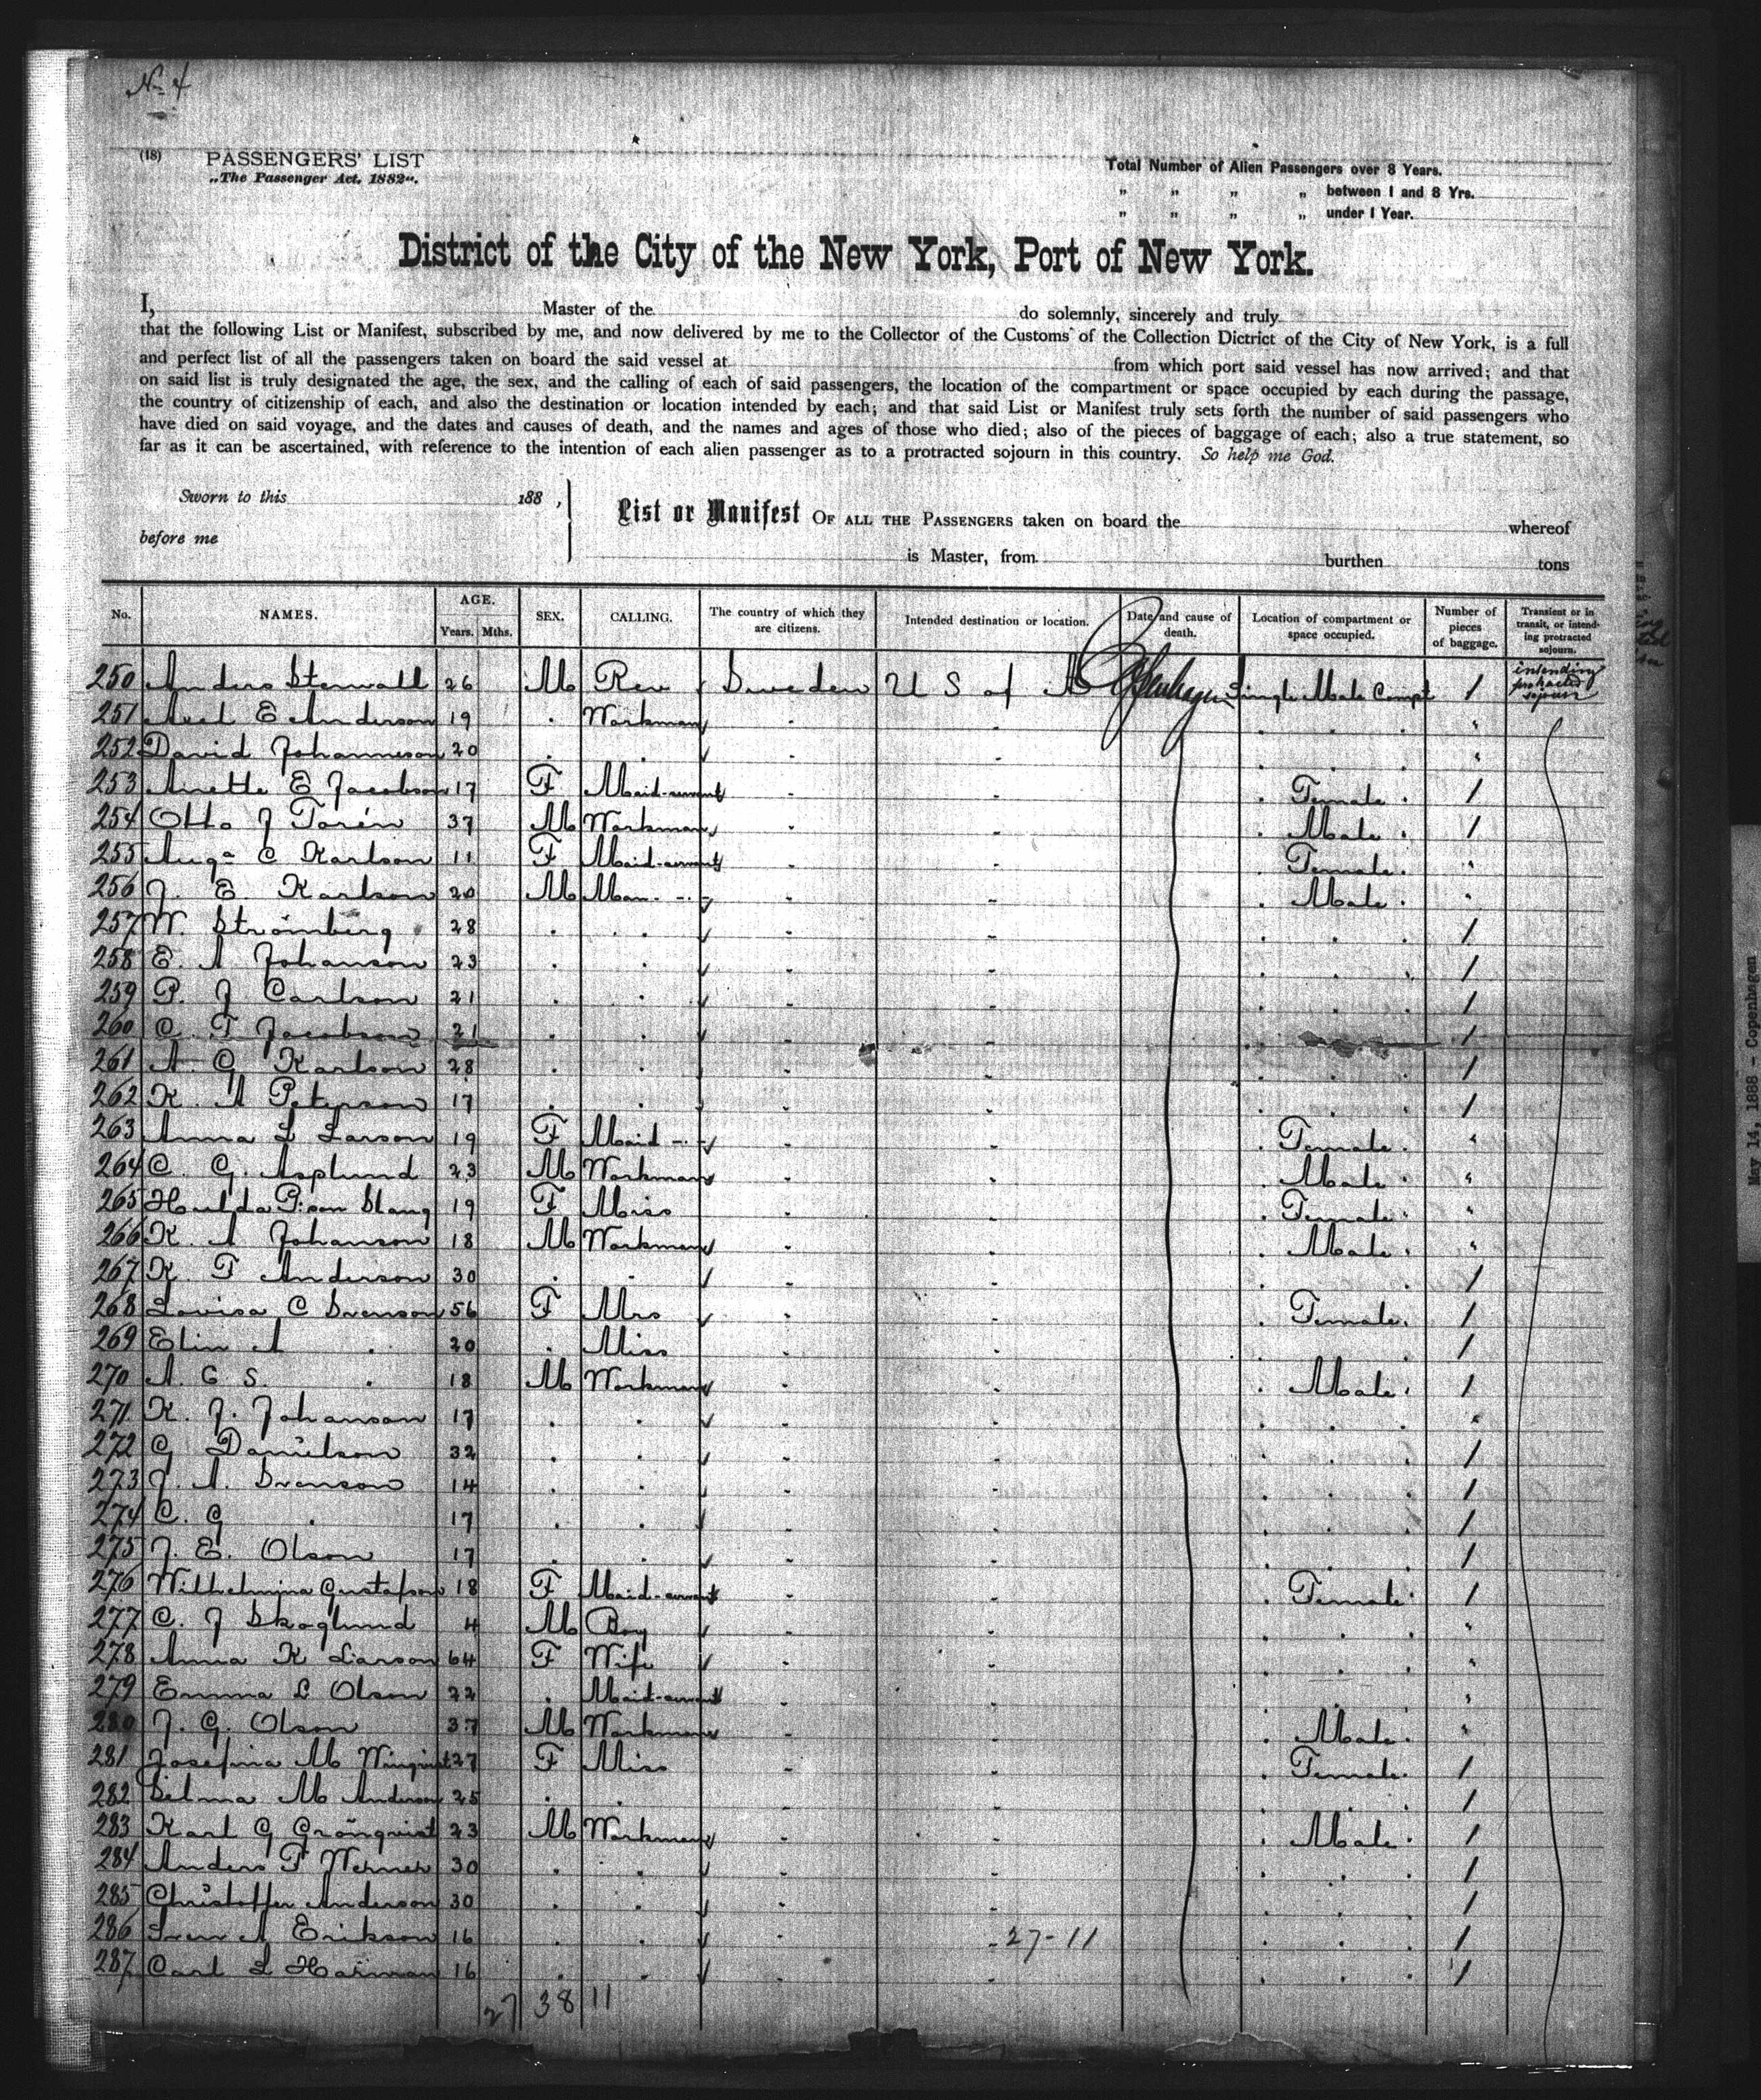 No 4
(18) PASSENGERS' LIST
„The Passenger Act, 1882".
Total Number of Alien Passengers over 8 Years.
„ „ „ „ between 1 and 8 Yrs.
„ „ „ „ under 1 Year.
District of the City of the New York, Port of New York.
I, Master of the do solemnly, sincerely and truly
that the following List or Manifest, subscribed by me, and now delivered by me to the Collector of the Customs of the Collection Dictrict of the City of New York, is a full
and perfect list of all the passengers taken on board the said vessel at from which port said vessel has now arrived; and that
on said list is truly designated the age, the sex, and the calling of each of said passengers, the location of the compartment or space occupied by each during the passage,
the country of citizenship of each, and also the destination or location intended by each; and that said List or Manifest truly sets forth the number of said passengers who
have died on said voyage, and the dates and causes of death, and the names and ages of those who died; also of the pieces of baggage of each; also a true statement, so
far as it can be ascertained, with reference to the intention of each alien passenger as to a protracted sojourn in this country. So help me God.
Sworn to this 188 ,
before me
List or Manifest OF ALL THE PASSENGERS taken on board the whereof
is Master, from burthen tons
No. NAMES. AGE. Years. Mths. SEX. CALLING. The country of which they are citizens. Intended destination or location. Date and cause of death. Location of compartment or space occupied. Number of pieces of baggage. Transient or in transit, or intending protracted sojourn.
250 Anders Stenvall 26 M Rev Sweden U S of A Single Male Compt 1 intending protracted sojourn
251 Axel E Anderson 19 . Workman . . . . . "
252 David Johanneson 20 . . . . . . . "
253 Anette E Jacobson 17 F Maid-servant . . . Female . 1
254 Otto J Torén 37 M Workman . . . Male . 1
255 Auga C Karlson 11 F Maid-servant . . . Female . "
256 J. E Karlson 20 M Man - . . . Male . "
257 W. Strömberg 28 . . . . . . . 1
258 E. A Johanson 23 . . . . . . . 1
259 P. J Carlson 21 . . . . . . . 1
260 C. F Jacobson 21 . . . . . . . 1
261 A. G Karlson 28 . . . . . . . 1
262 K. A Peterson 17 . . . . . . . 1
263 Anna L Larson 19 F Maid - . . . Female . "
264 C. G. Asplund 23 M Workman . . . Male . "
265 Hulda P:son Stang 19 F Miss . . . Female . "
266 K. A Johanson 18 M Workman . . . Male . "
267 K. F Anderson 30 . . . . . . . 1
268 Lovisa C Svenson 56 F Mrs . . . Female . 1
269 Elin A . 20 . Miss . . . . . 1
270 A. G S. . 18 M Workman . . . Male . 1
271 K. J. Johanson 17 . . . . . . . "
272 G Danielson 32 . . . . . . . 1
273 J. A. Svenson 14 . . . . . . . 1
274 C. G . 17 . . . . . . . 1
275 J. E. Olson 17 . . . . . . . 1
276 Wilhelmina Gustafson 18 F Maid-servant . . . Female . 1
277 C. J Skoglund 4 M Boy . . . . . "
278 Anna K Larson 64 F Wife . . . . . "
279 Emma L Olson 22 . Maid-servant . . . . . "
280 J. G. Olson 37 M Workman . . . Male . "
281 Josefina M Winqvist 27 F Miss . . . Female . 1
282 Selma M Anderson 25 . . . . . . . 1
283 Karl G Grönqvist 23 M Workman . . . Male . 1
284 Anders F Werner 30 . . . . . . . 1
285 Christoffer Anderson 30 . . . . . . . 1
286 Sven A Erikson 16 . . . . 27-11 . . . 1
287 Carl L 16 . . . . . . . 1
27 38 11
May 14, 1888 - Copenhagen